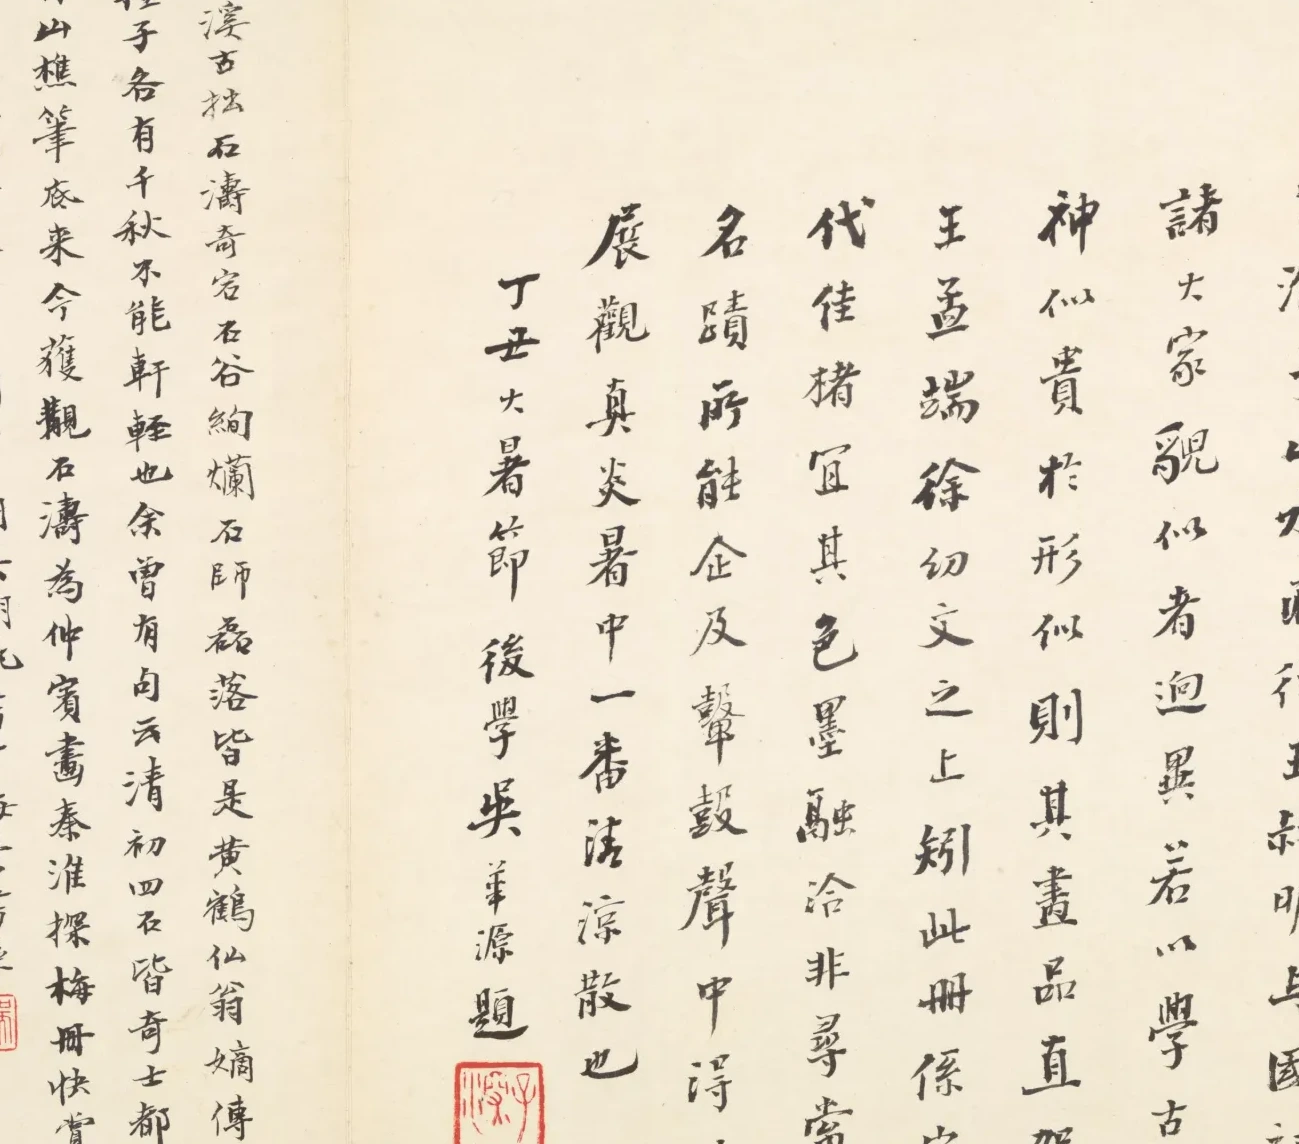 諸大家貌似者迥異若以學古
神似貴於形似則其畫品直
王孟端徐幼文之上矧此冊係
代佳楮宜其色墨融洽非尋常
名蹟所能企及鼙鼓聲中得
展觀真炎暑中一番清涼散也
丁丑大暑節後學吳華源題
溪古拙石濤奇宕石谷絢爛石師磊落皆是黃鶴仙翁嫡傳
子各有千秋不能軒輊也余曾有句云清初四石皆奇士都
山樵筆底来今獲觀石濤為仲賓畫秦淮探梅冊快賞